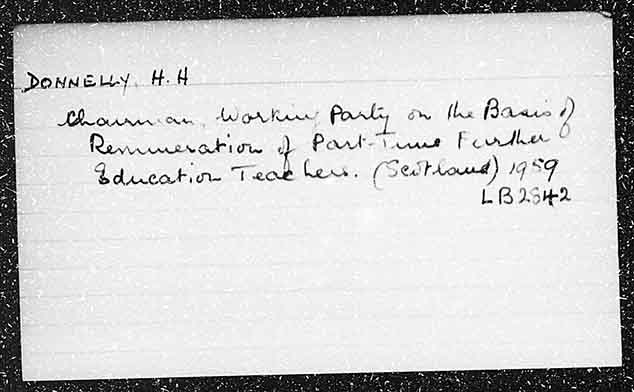 DONNELLY, H. H
Chairman, Working Party on the Basis of
Remuneration of Part-Time Further
Education Teachers. (Scotland) 1959
LB2842